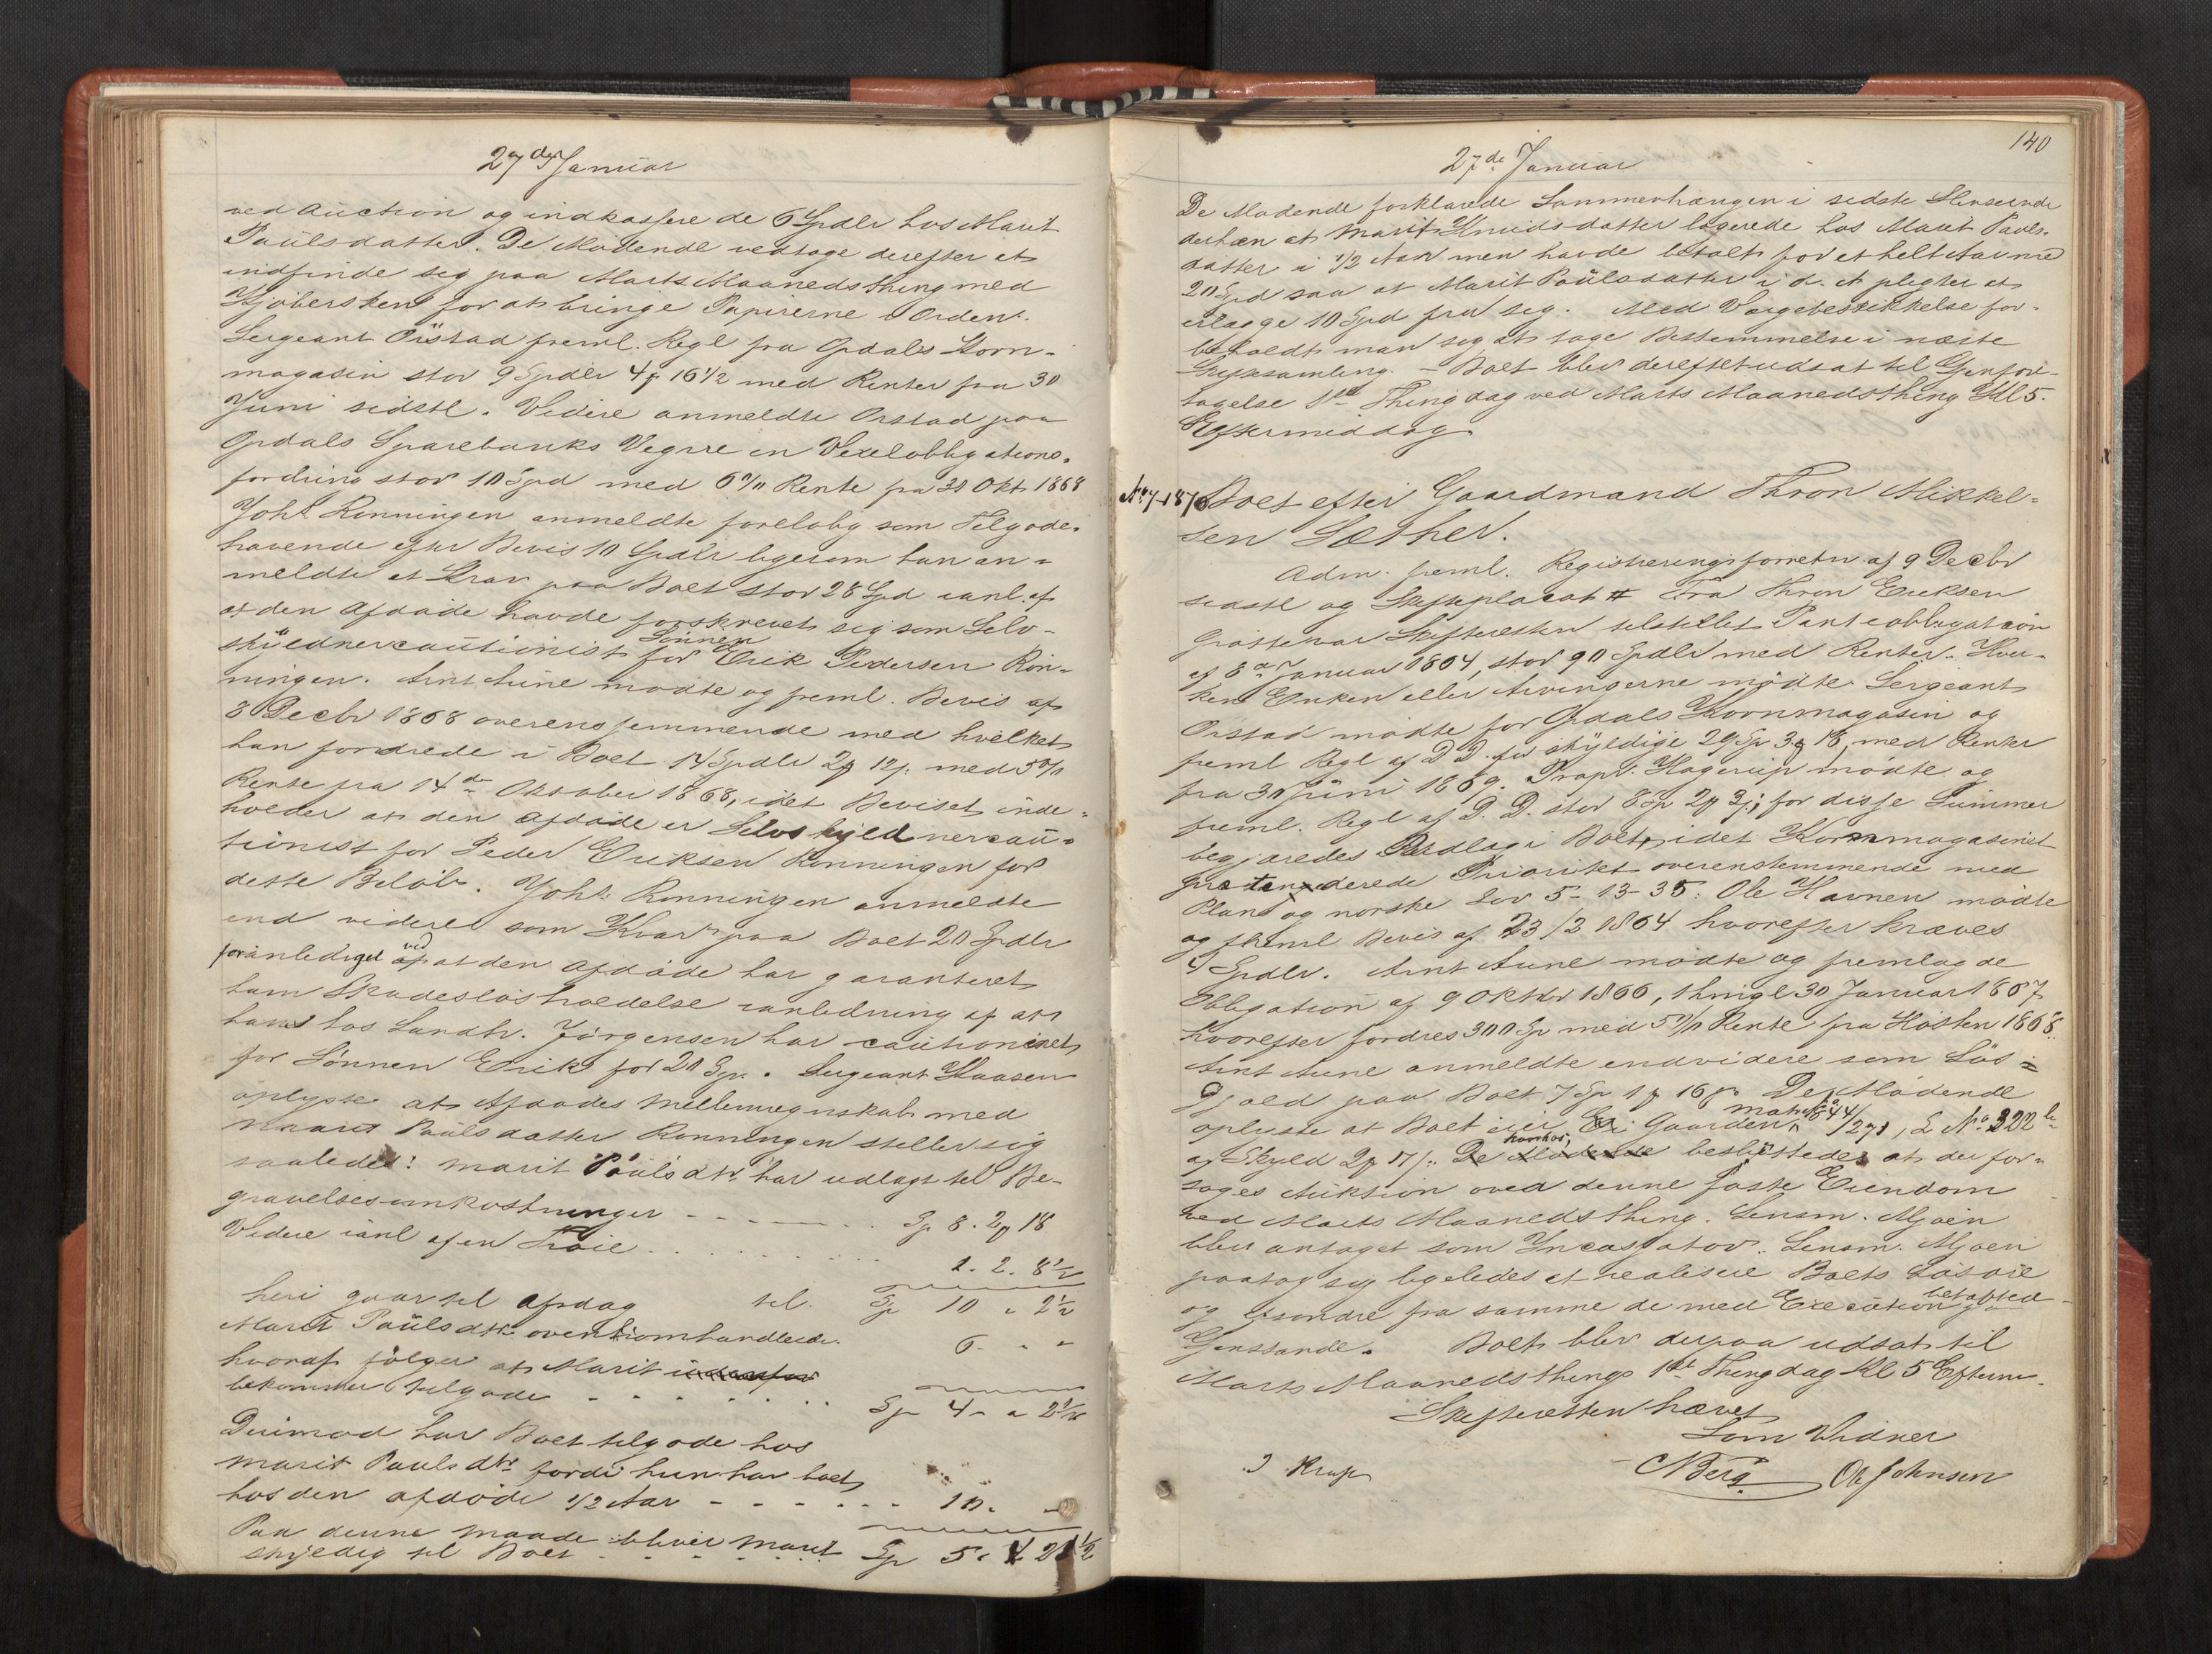 27de Januar
ved Auction og indkassere de 6 Spdlr hos Marit
Paulsdatter. De Mødende vedtoge derefter at
indfinde sig paa Marts Maanedsthing med
Kjøbersken for at bringe Papirerne i Orden.
Sergeant Ørstad freml. Regl fra Opdals Korn-
magasin stor 9 Spdlr 4 # 16 1/2 med Renter fra 30
Juni sidstl. Videre anmeldte Ørstad paa
Opdals Sparebanks Vegne en Vexelobligations-
fordring stor 10 Spd med 6 % Rente fra 20 Okt 1868
Joh! Rønningen anmeldte foreløbig som Tilgode-
havende efter Bevis 10 Spdlr ligesom han an-
meldte et Krav paa Boet stor 28 Spd ianl. af
at den Afdøde havde forskrevet sig som Selv-
skyldnercautionist for Sønnen Erik Pedersen Røn-
ningen. Arnt Aune mødte og freml. Bevis af
3 Decbr 1868 overensstemmende med hvilket
han fordrede i Boet 14 Spdlr 2 # 12 s. med 5 %
Rente fra 14de Oktober 1868, idet Beviset inde-
holder at den Afdøde er Selvskyldnercau-
tionist for Peder Eriksen Rønningen for
dette Beløb. Joh! Rønningen anmeldte
end videre som Krav paa Boet 20 Spdlr
foranlediget ved at den Afdøde har garanteret
ham Skadesløsholdelse ianledning af at
han hos Landh. Jørgensen har cautioneret
for Sønnen Erik for 20 Spr. Sergeant Haasen
oplyste at Afdødes Mellemregnskab med
Marit Paulsdatter Rønningen stiller sig
saaledes: Marit Paulsdtr har udlagt til Be-
gravelsesomkostninger - - - - Sp 8. 2 # 18
Videre ianl af en Trøie . . . . 1. 2. 8 1/2
heri gaar til Afdrag til Sp 10 " 2 1/2
Marit Paulsdtr ovenomhandlede 6. " "
hvoraf følger at Marit
bekommer tilgode - - - - Sp 4 " " 2 1/2
Derimod har Boet tilgode hos
Marit Paulsdtr fordi hun har boet
hos den afdøde 1/2 Aar - - - - 10. "
Paa denne Maade bliver Marit
skyldig til Boet - - - - Sp 5 " 4 21 1/2
140
27de Januar
De Mødende forklarede Sammenhængen i sidste Henseende
derhen at Marit Knudsdatter logerede hos Marit Pauls-
datter i 1/2 Aar men havde betalt for et helt Aar med
20 Spd saa at Marit Paulsdatter i d. A pligter at
erlægge 10 Spd fra sig. Med Værgebeskikkelse for-
beholdt man sig at tage Bestemmelse i næste
Skiftesamling. - Boet blev derefter udsat til Gjenfore-
tagelse 1ste Thingdag ved Marts Maanedsthing Kl 5.
Eftermiddag
No 7-1870 Boet efter Gaardmand Thron Mikkel-
sen Sæther.
Adm. freml. Registreringsforretn af 9 Decbr
sidstl og Skifteplacat # Fra Thron Eriksen
Skifteretten tilstillet Panteobligation
af 8de Januar 1864, stor 90 Spdlr med Renter. Hver-
ken Enken eller Arvingerne mødte. Sergeant
Ørstad mødte for Opdals Kornmagasin og
freml Regl af D D. for skyldige 29 Sp 3 # 16, med Renter
fra 30 Juni 1869. Propr. Hagerup mødte og
freml. Regl af D. D. stor 8 Sp 2 # 3 s; for disse Summer
begjæredes Udlæg i Boet, idet Kornmagasinet
prætenderede Prioritet overensstemmende med
Plan og norske Lov 5-13-35: Ole Havnen mødte
og freml Bevis af 23/2 1864 hvorefter kræves
4 Spdlr. Arnt Aune mødte og fremlagde
Obligation af 9 Oktbr 1866, thingl 30 Januar 1867
hvorefter fordres 300 Sp med 5 % Rente fra Høsten 1868.
Arnt Aune anmeldte endvidere som Løs-
gjæld paa Boet 7 Sp 1 # 16 s. De Mødende
oplyste at Boet eier Gaarden matr No 44/271, L No 322b
af Skyld 2 # 17 s.: hvorhos De Mødende besluttedes at der for-
søges Auktion over denne faste Eiendom
ved Marts Maanedsthing. Lensm. Mjøen
blev antaget som Incassator. Lensm. Mjøen
paatog sig ligeledes at realisere Boets Løsøre
og afsondre fra samme de med Execution behæftede
Gjenstande. Boet blev derpaa udsat til
Marts Maanedsthings 1ste Thingdag Kl 5 Efterm.
Skifteretten hævet
Som Vidner
J Krag
N Berg Ole Johnsen